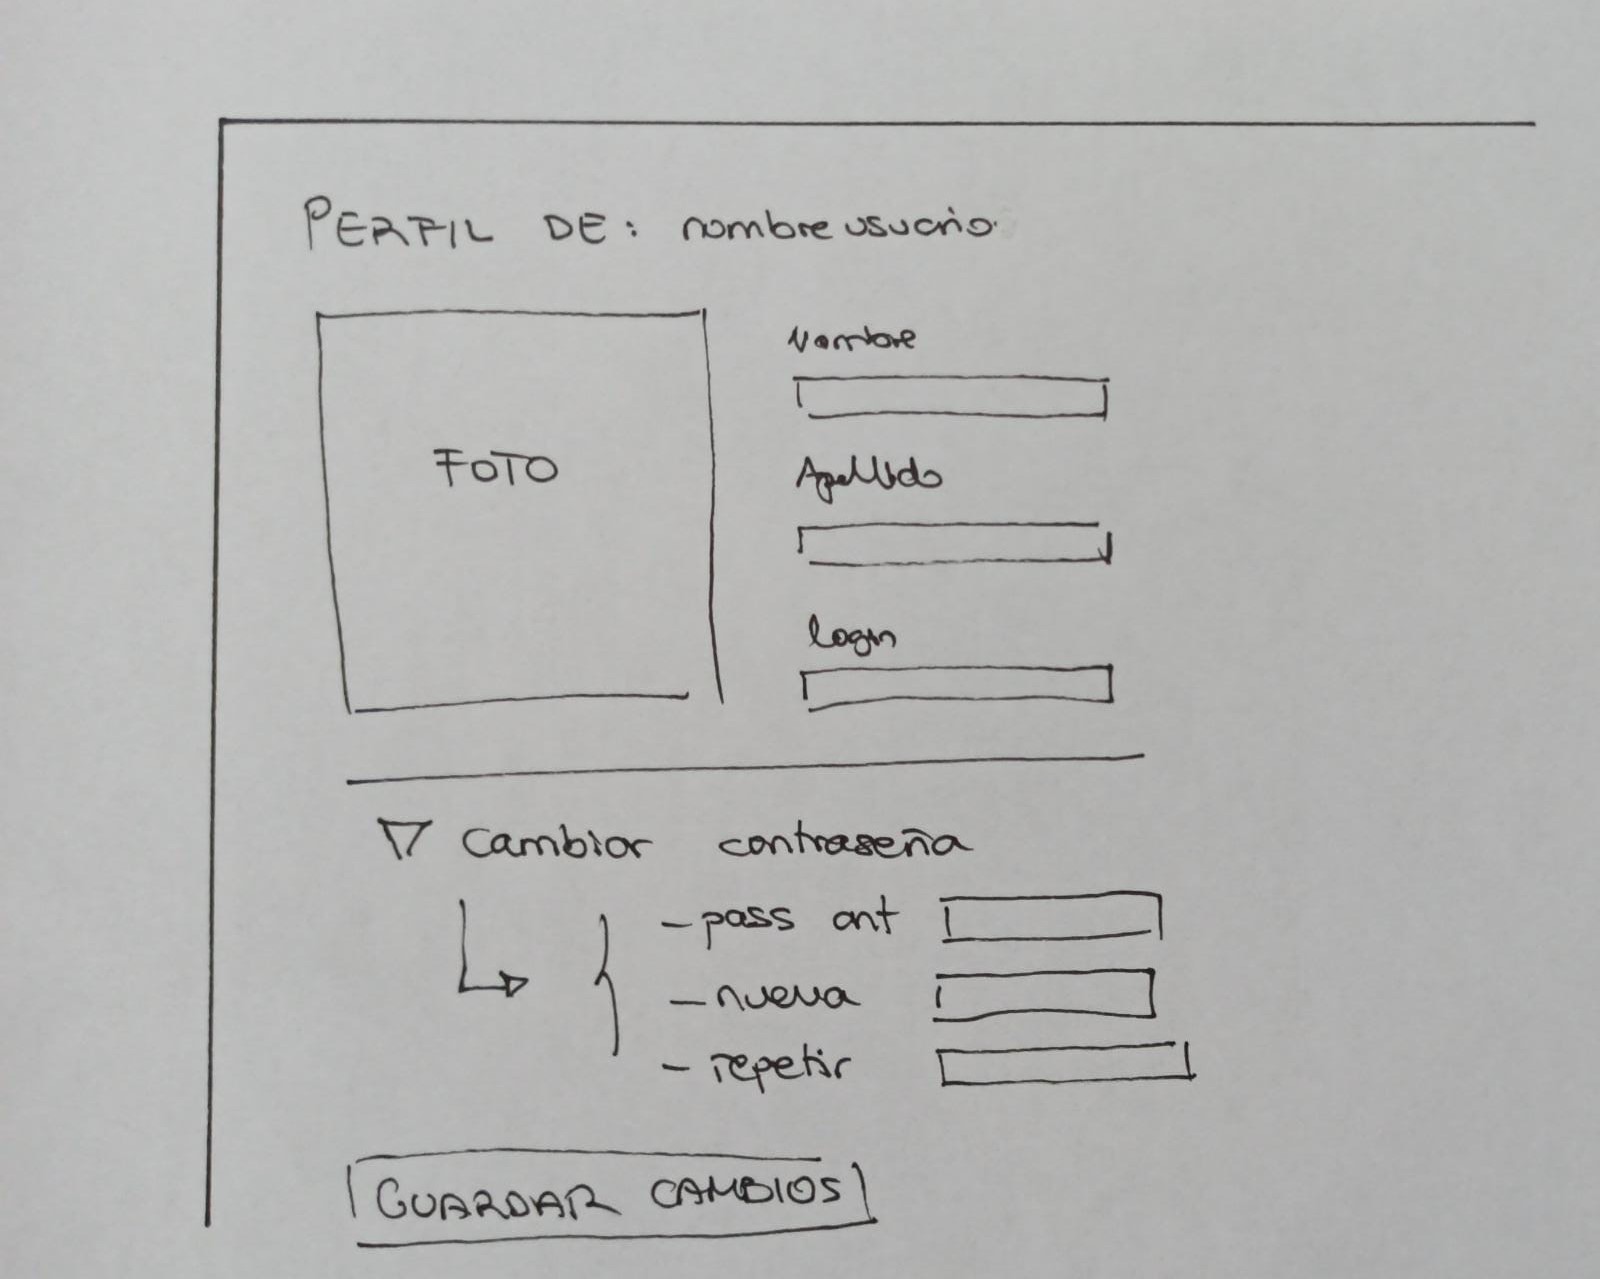 PERFIL DE: nombre usuario
Nombre
FOTO
Apellido
login
Cambiar contraseña
- pass ant
- nueva
- repetir
GUARDAR CAMBIOS